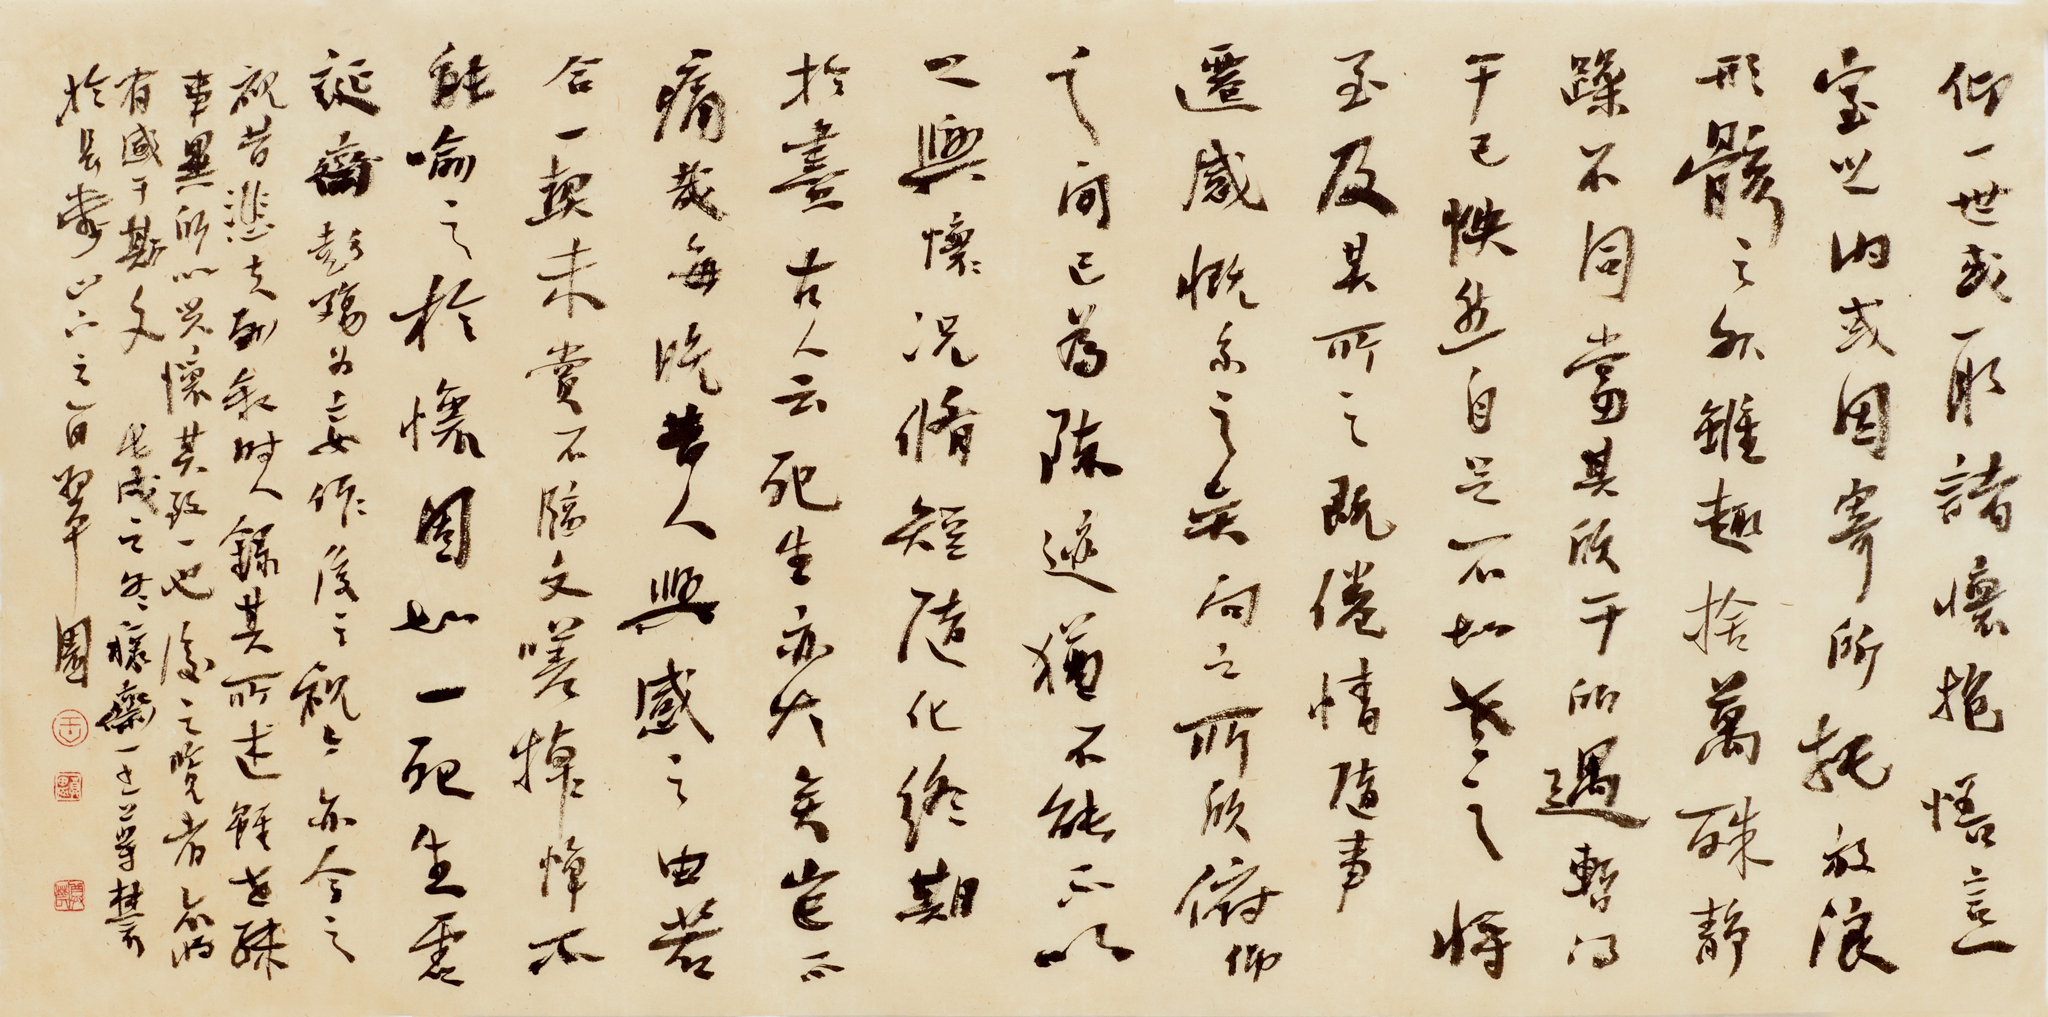 仰一世或取諸懷抱悟言一
室之內或因寄所託放浪
形骸之外雖趣捨萬殊靜
躁不同當其欣于所遇暫得
于己怏然自足不知老之將
至及其所之既倦情隨事
遷感慨系之矣向之所欣俯仰
之間已為陳迹猶不能不以
之興懷況脩短隨化終期
於盡古人云死生亦大矣豈不
痛哉每覽昔人興感之由若
合一契未嘗不臨文嗟悼悼不
能喻之於懷固知一死生為虛
誕齊彭殤為妄作後之視今亦今之
視昔悲夫故列敘時人錄其所述雖世殊
事異所以興懷其致一也後之覽者亦將
有感于斯文 戊戌之冬 齋
於 之 日 園